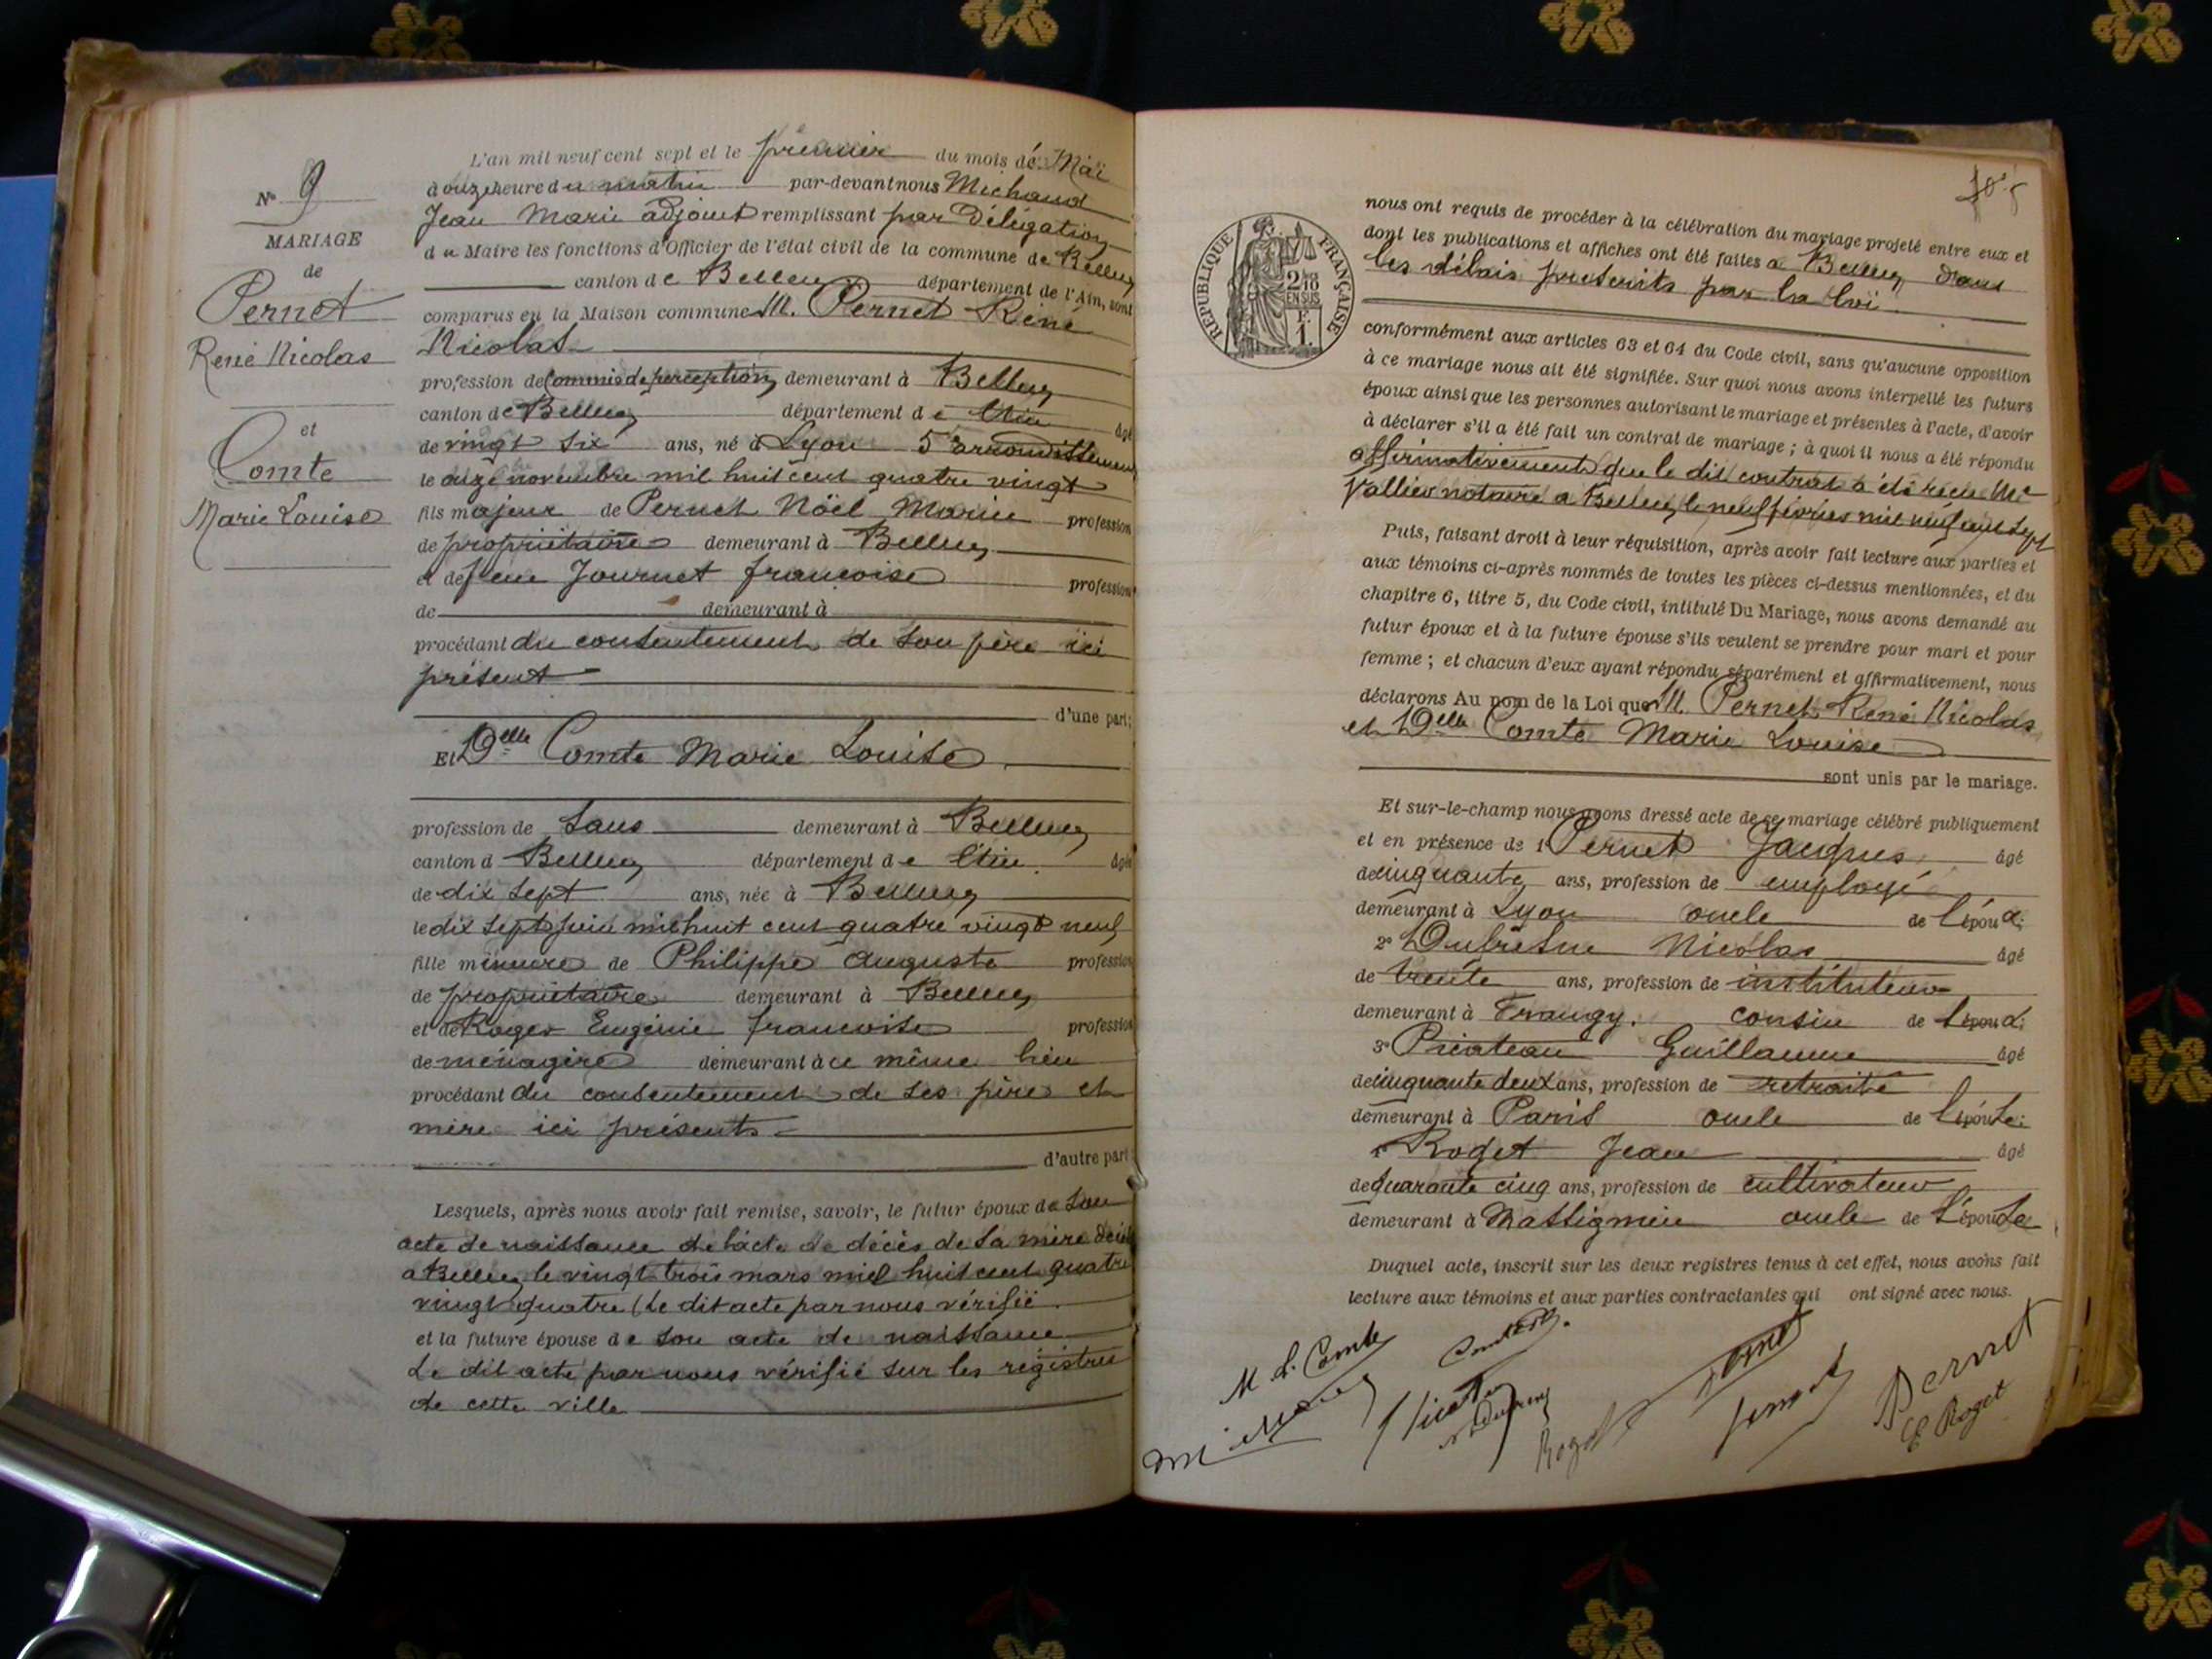 N° 9
MARIAGE
de
Pernet
René Nicolas
et
Comte
Marie Louise
L'an mil neuf cent sept et le premier du mois de Mai
à onze heure du matin par-devant nous Michaud
Jean Marie adjoint remplissant par Délégation
du Maire les fonctions d'Officier de l'état civil de la commune de Belley
canton de Belley département de l'Ain, sont
comparus en la Maison commune M. Pernet René
Nicolas
profession de Commis de perception, demeurant à Belley
canton de Belley département de l'Ain âgé
de vingt six ans, né à Lyon 5e arrondissement
le onze novembre mil huit cent quatre vingt
fils majeur de Pernet Noël Marie profession
de propriétaire demeurant à Belley
et de feue Journet françoise profession
de demeurant à
procédant du consentement de son père ici
présent
d'une part;
Et Delle Comte Marie Louise
profession de Sans demeurant à Belley
canton d Belley département de l'Ain. âgée
de dix sept ans, née à Belley
le dix sept juin mil huit cent quatre vingt neuf
fille mineure de Philippe Auguste profession
de propriétaire demeurant à Belley
et de Roget Eugénie françoise profession
de ménagère demeurant à ce même lieu
procédant du consentement de ses père et
mère ici présents
d'autre part
Lesquels, après nous avoir fait remise, savoir, le futur époux de son
acte de naissance de l'acte de décès de sa mère
à Belley le vingt trois mars mil huit cent quatre
vingt quatre (Le dit acte par nous vérifié
et la future épouse de son acte de naissance
Le dit acte par nous vérifié sur les régistres
de cette ville
105
RÉPUBLIQUE FRANÇAISE
2/10
EN SUS
1F.
nous ont requis de procéder à la célébration du mariage projeté entre eux et
dont les publications et affiches ont été faites à Belley dans
les délais prescrits par la loi
conformément aux articles 63 et 64 du Code civil, sans qu'aucune opposition
à ce mariage nous ait été signifiée. Sur quoi nous avons interpellé les futurs
époux ainsi que les personnes autorisant le mariage et présentes à l'acte, d'avoir
à déclarer s'il a été fait un contrat de mariage ; à quoi il nous a été répondu
affirmativement que le dit contrat a été reçu Me
Vallier notaire à Belley le neuf février mil neuf cent sept
Puis, faisant droit à leur réquisition, après avoir fait lecture aux parties et
aux témoins ci-après nommés de toutes les pièces ci-dessus mentionnées, et du
chapitre 6, titre 5, du Code civil, intitulé Du Mariage, nous avons demandé au
futur époux et à la future épouse s'ils veulent se prendre pour mari et pour
femme ; et chacun d'eux ayant répondu séparément et affirmativement, nous
déclarons Au nom de la Loi que M. Pernet René Nicolas
et Delle Comte Marie Louise
sont unis par le mariage.
Et sur-le-champ nous avons dressé acte de ce mariage célébré publiquement
et en présence de 1° Pernet Jacques âgé
de cinquante ans, profession de employé
demeurant à Lyon oncle de l'époux;
2° Dufresne Nicolas âgé
de trente ans, profession de instituteur
demeurant à Frangy. cousin de l'époux;
3° Picateau Guillaume âgé
de cinquante deux ans, profession de retraité
demeurant à Paris oncle de l'épouse;
Roget Jean âgé
de quarante cinq ans, profession de cultivateur
demeurant à Massignieu oncle de l'épouse
Duquel acte, inscrit sur les deux registres tenus à cet effet, nous avons fait
lecture aux témoins et aux parties contractantes qui ont signé avec nous.
M. L. Comte
Pernet
E Roget